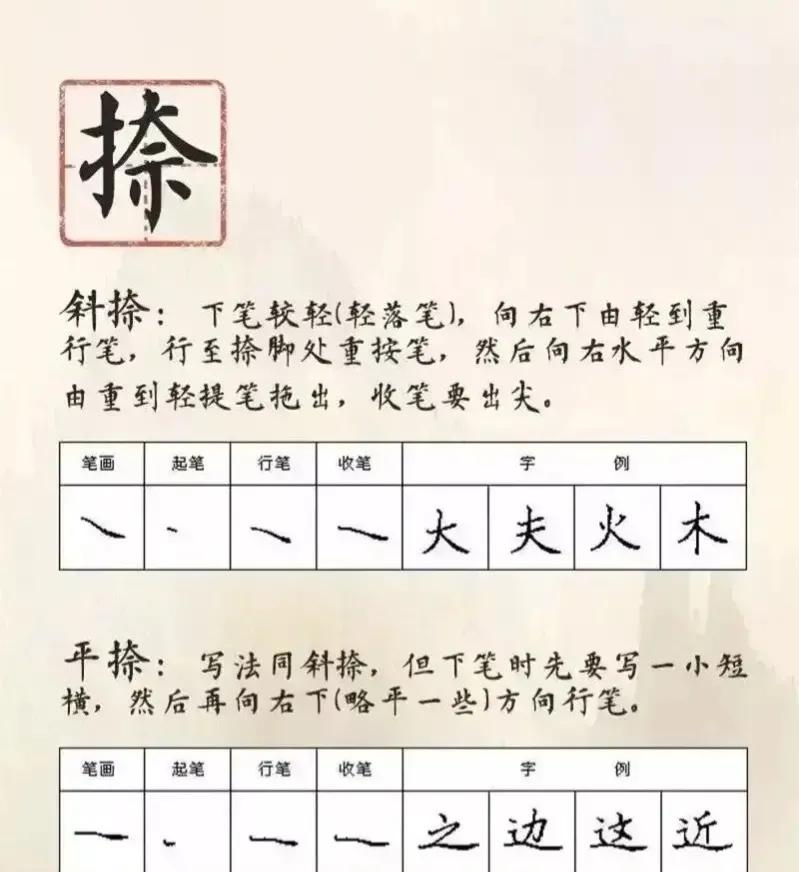 捺
斜捺：下笔较轻(轻落笔)，向右下由轻到重
行笔，行至捺脚处重按笔，然后向右水平方向
由重到轻提笔拖出，收笔要出尖。
笔画 起笔 行笔 收笔 字例
大 夫 火 木
平捺：写法同斜捺，但下笔时先要写一小短
横，然后再向右下(略平一些)方向行笔。
笔画 起笔 行笔 收笔 字例
之 边 这 近